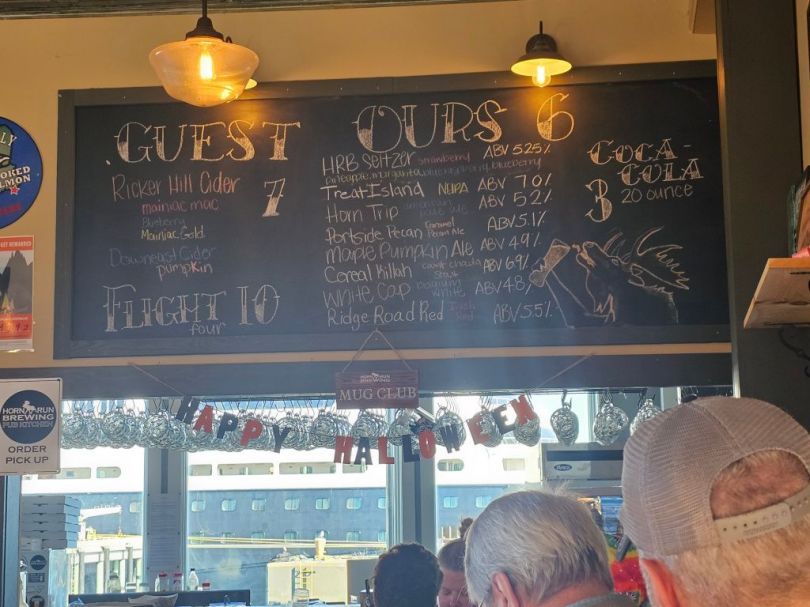 GUEST
Ricker Hill Cider 7
mainiac mac
Blueberry
Mainiac Gold
Downeast Cider
pumpkin
FLIGHT 10
four
OURS 6
HRB Seltzer strawberry ABV 5.25%
Treat Island NEIPA ABV 7.0%
Horn Trip ABV 5.2%
Portside Pecan Caramel Pecan Ale ABV 5.1%
Maple Pumpkin Ale ABV 4.9%
Cereal Killah ABV 6.9%
White Cap Belgium White ABV 4.8%
Ridge Road Red Irish Red ABV 5.5%
COCA-
COLA
3 20 ounce
HORN RUN
BREWING
MUG CLUB
HAPPY HALLOWEEN
HORN RUN
BREWING
PUB KITCHEN
ORDER
PICK UP